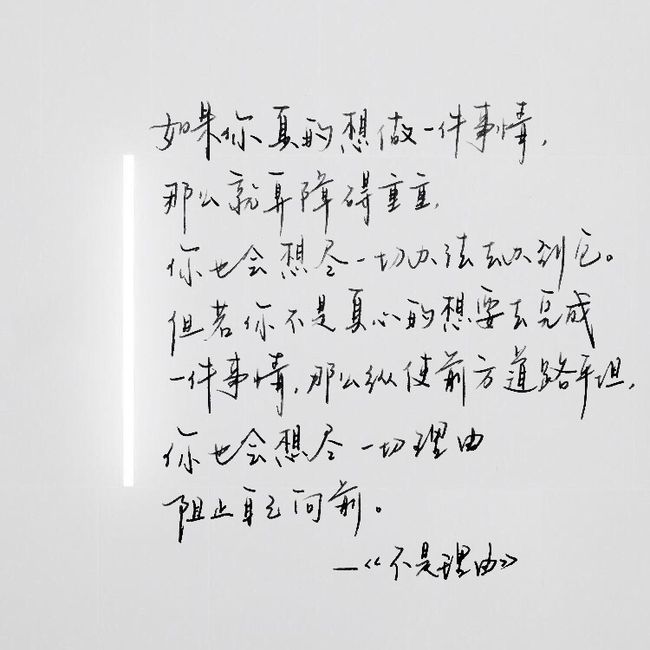 如果你真的想做一件事情,
那么就算障碍重重,
你也会想尽一切办法去办到它。
但若你不是真心的想要去完成
一件事情,那么纵使前方道路平坦,
你也会想尽一切理由
阻止自己向前。
—《不是理由》